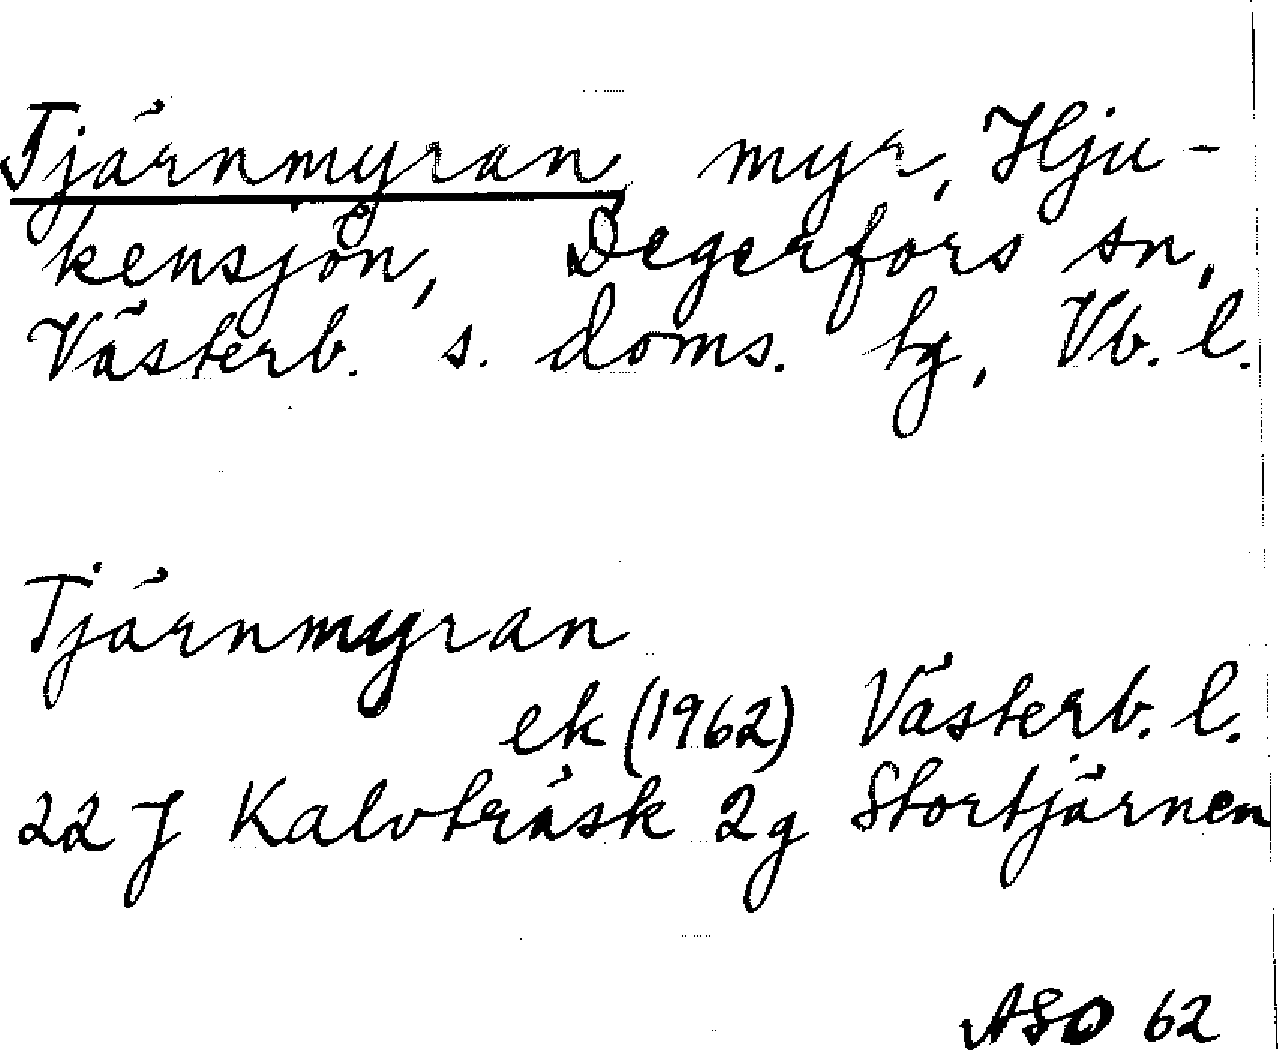 Tjärnmyran myr, Hju-
kensjön, Degerfors sn,
Västerb. s. doms. tg, Vb. l.
Tjärnmyran
ek (1962) Västerb. l.
22 J Kalvträsk 2g Stortjärnen
ASO 62